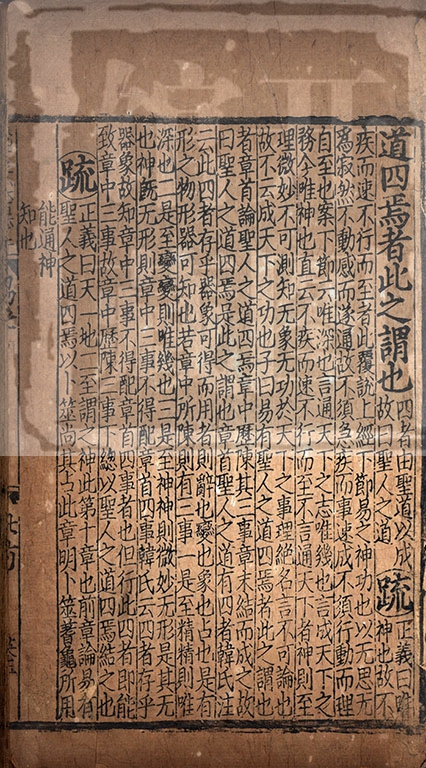 道四焉者此之謂也
四者由聖道以成
故曰聖人之道
疏
正義曰唯
神也故不
疾而速不行而至者此覆說上經下節易之神功也以无思无
爲寂然不動感而遂通故不須急疾而事速成不須行動而理
自至也案下節云唯深也言通天下之志唯幾也言成天下之
務今唯神也直云不疾而速不行而至不言通天下者神則至
理微妙不可測知无象无功於天下之事理絶名言不可論也
故不云成天下之功也子曰易有聖人之道四焉者此之謂也
者章首論聖人之道四焉章中歷陳其三事章末結而成之故
曰聖人之道四焉是此之謂也章首聖人之道有四者韓氏注
云此四者存乎器象可得而用者則辭也變也象也占也是有
形之物形器可知也若章中所陳則有三事一是至精精則唯
深也二是至變變則唯幾也三是至神神則微妙无形是其无
也神旣无形則章中三事不得配章首四事韓氏云四者存乎
器象故知章中三事不得配章首四事者也但行此四者即能
致章中三事故章中歷陳三事下總以聖人之道四焉結之也
疏
正義曰天一地二至謂之神此第十章也前章論易有
聖人之道四焉以卜筮尚其占此章明卜筮蓍龜所用
能通神
知也